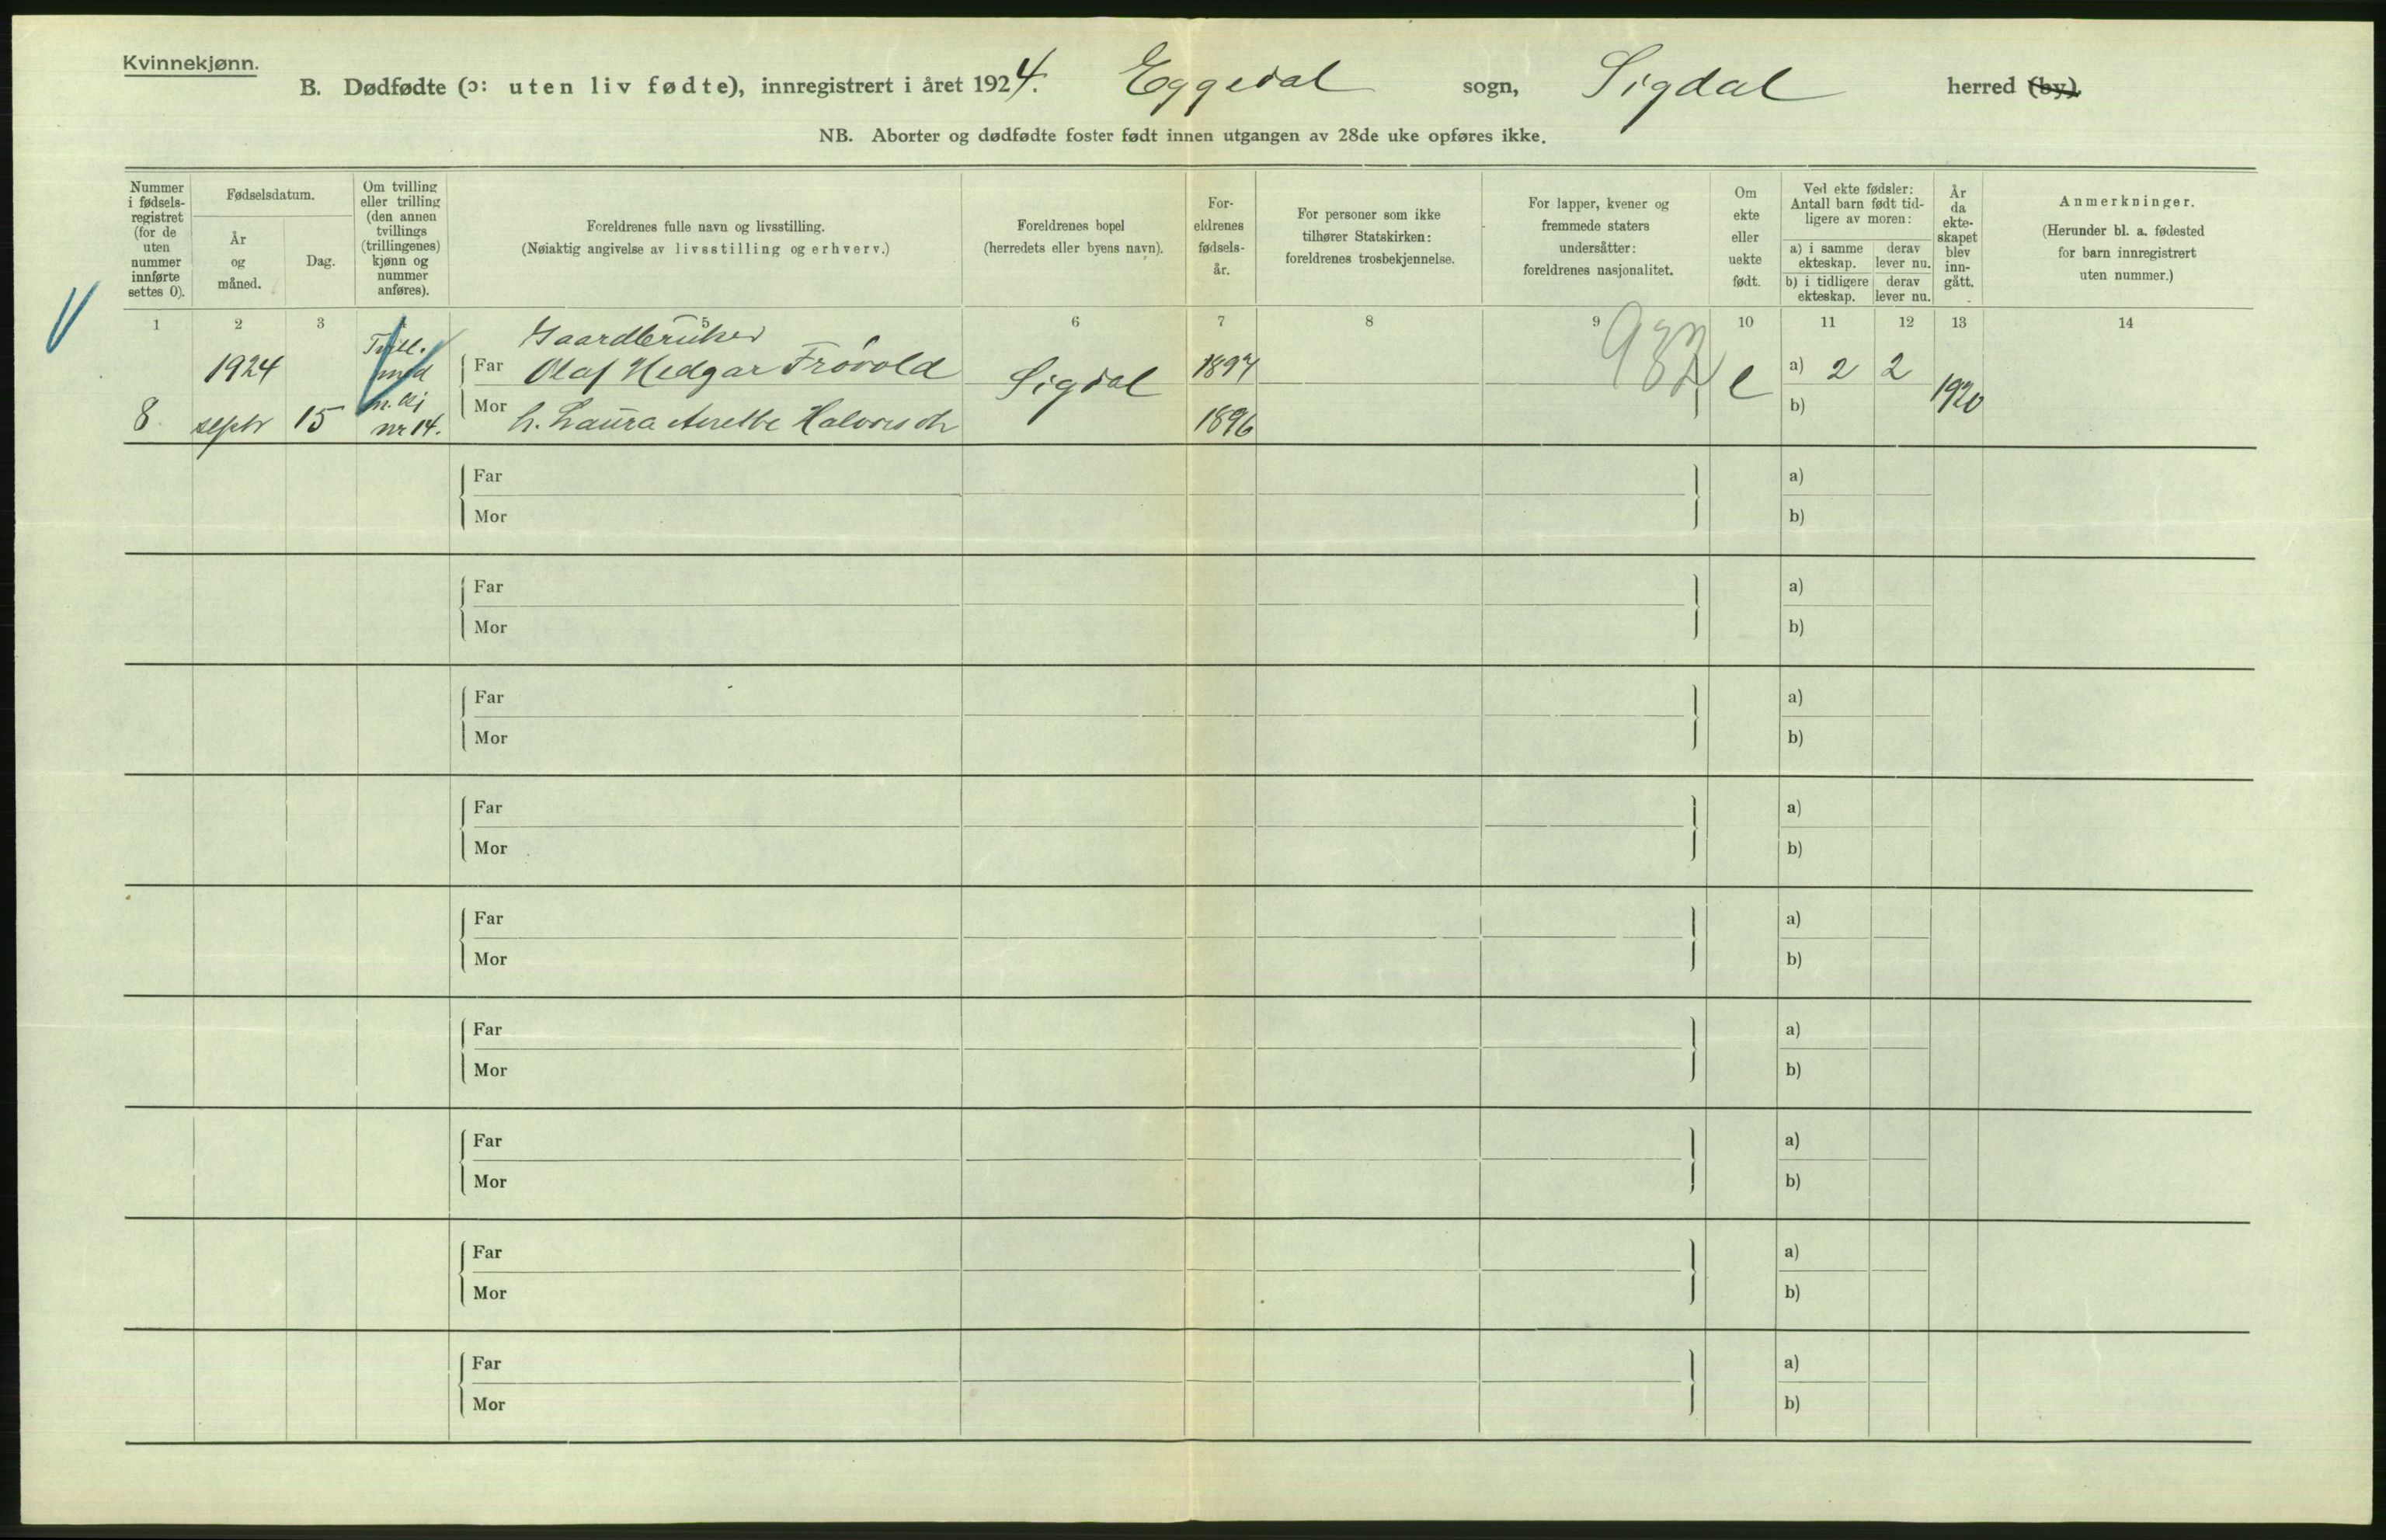 Kvinnekjønn.
B. Dødfødte (ɔ: uten liv fødte), innregistrert i året 1924. Eggedal sogn, Sigdal herred (by).
NB. Aborter og dødfødte foster født innen utgangen av 28de uke opføres ikke.
Nummer i fødsels-registret (for de uten nummer innførte settes 0).
Fødselsdatum.
År og måned.
Dag.
Om tvilling eller trilling (den annen tvillings (trillingenes) kjønn og nummer anføres).
Foreldrenes fulle navn og livsstilling.
(Nøiaktig angivelse av livsstilling og erhverv.)
Foreldrenes bopel
(herredets eller byens navn).
For-eldrenes fødsels-år.
For personer som ikke tilhører Statskirken: foreldrenes trosbekjennelse.
For lapper, kvener og fremmede staters undersåtter: foreldrenes nasjonalitet.
Om ekte eller uekte født.
Ved ekte fødsler: Antall barn født tid-ligere av moren:
a) i samme ekteskap.
derav lever nu.
b) i tidligere ekteskap.
derav lever nu.
År da ekte-skapet blev inn-gått.
Anmerkninger.
(Herunder bl. a. fødested for barn innregistrert uten nummer.)
1 2 3 5 6 7 8 9 10 11 12 13 14
932
Tvill.
Gaardbruker
1924 med Far Olaf Hedgar Frøvold Sigdal 1897 e a) 2 2 1920
8 septr 15 m. kj nr 14. Mor h. Laura Halvorsdr 1896 b)
Far a)
Mor b)
Far a)
Mor b)
Far a)
Mor b)
Far a)
Mor b)
Far a)
Mor b)
Far a)
Mor b)
Far a)
Mor b)
Far a)
Mor b)
Far a)
Mor b)